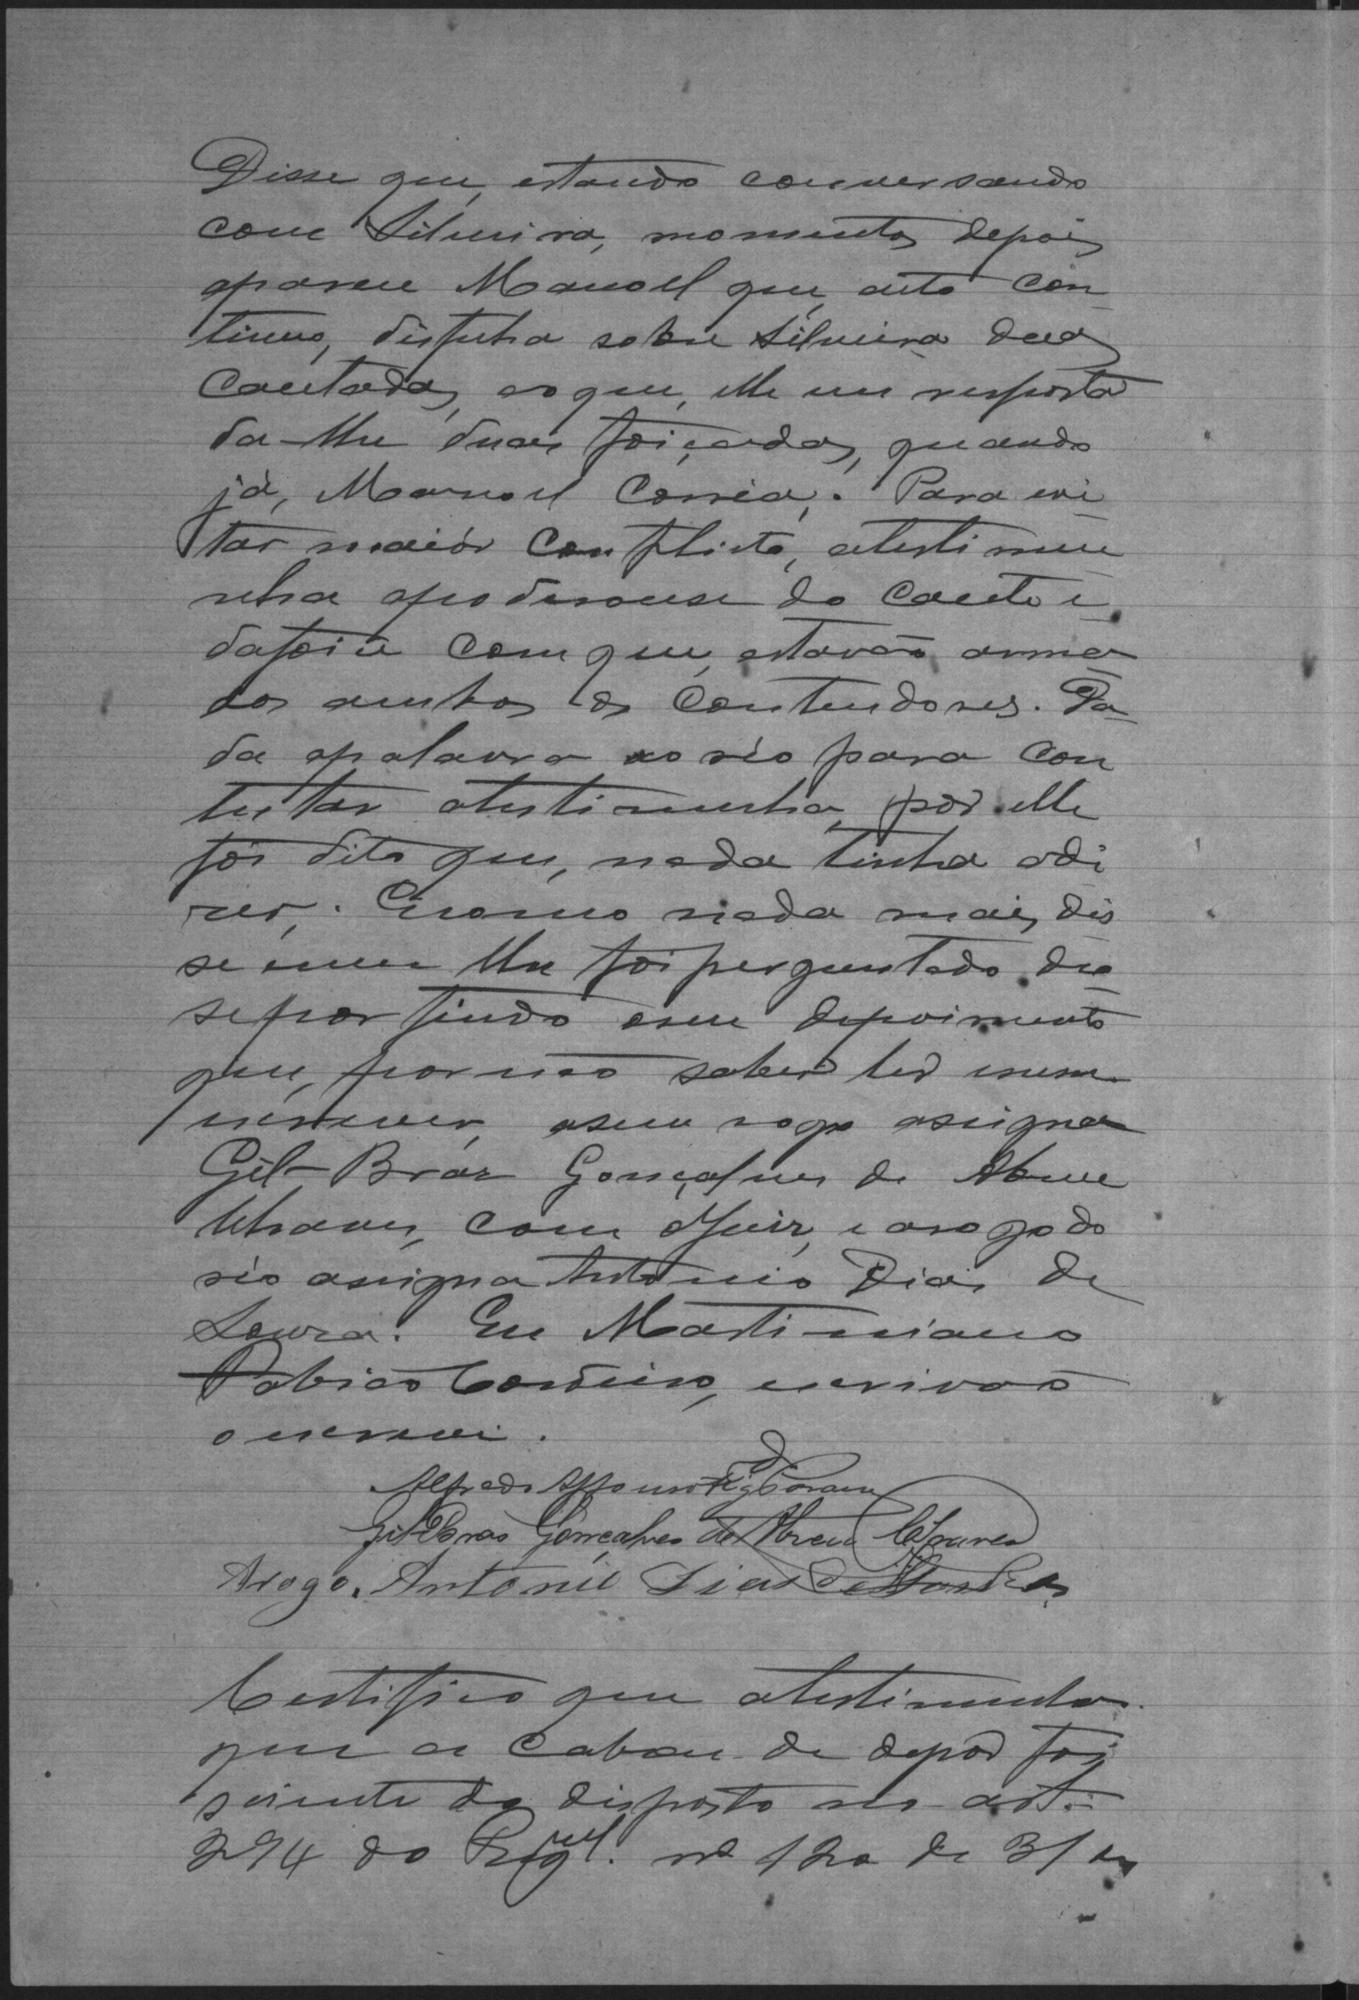 Disse que, estando conversando
com Silveira, momentos depois
aparece Manoel que, acto con
tinuo, disfecha sobre Silveira duas
cacetadas, ao que, elle em resposta
da-lhe duas foiçadas, quando
já, Manoel Corrêa,. Para evi
tar maiór conflicto, atestimu
nha apoderouse do cacete e
dafoice com que, estavão arma
dos ambos os contendores. Da
da apalavra ao réo para con
testar atestimunha, por elle
foi dito que, nada tinha adi
zer,. Ecomo nada mais dis
se nem lhe foi perguntado deu
sepor findo oseu depoimento
que, por não saber ler nem
escrever, aseu rogo assigna
Gil Bráz Gonçalves de Abreu
Chaves, com oJuiz, e arogo do
réo assigna Antonio Dias de
Souza. Eu Martiniano
Fabiao Cordeiro, escrivão
o escrevi.
Alfredo Affonso
Gil Bras Gonçalves de Abreu Chaves
Arogo. Antonio Dias de
Certifico que atestimunha
que a cabou de depor foi
sciente do disposto no art.
294 do Regul. nº 120 de 31 de